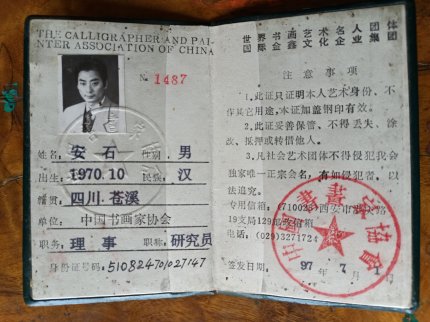 THE CALLIGRAPHER AND PAI-
NTER ASSOCIATION OF CHINA
№ 1487
姓名: 安石 性别: 男
出生: 1970.10 民族: 汉
籍贯: 四川.苍溪
单位: 中国书画家协会
职务: 理事 职称: 研究员
身份证号码: 510824701027147
世界书画艺术名人团体
国际金鑫文化企业集团
注意事项
1.此证只证明本人艺术身份,不
作其它用途,本证加盖钢印有效。
2.此证妥善保管、不得丢失、涂
改、抵押或转借他人。
3.凡社会艺术团体不得侵犯我会
独家唯一正宗会名,有如侵犯者,以
法追究。
专用信箱: (710023)西安市
19支局129邮政信箱
电话: (029)3271724
签发日期: 97年7月1日